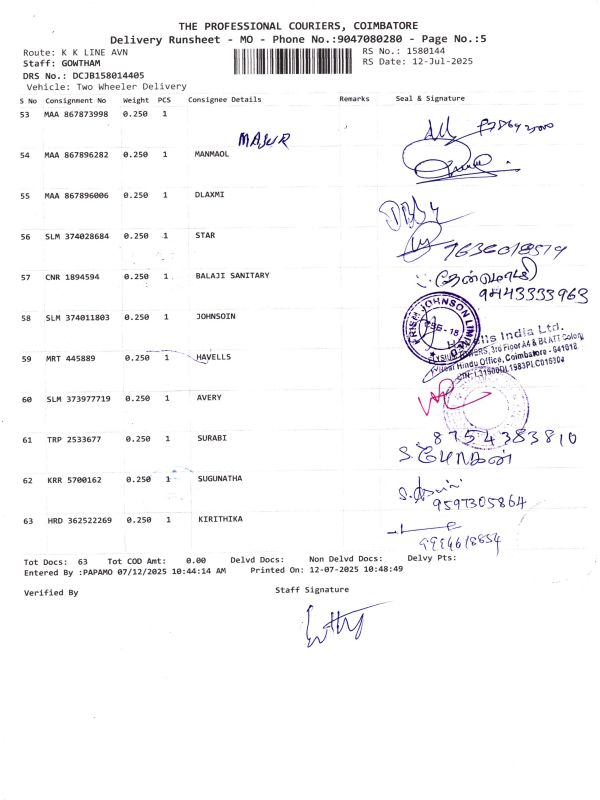 THE PROFESSIONAL COURIERS, COIMBATORE
Delivery Runsheet - MO - Phone No.:9047080280 - Page No.:5
Route: K K LINE AVN
RS No.: 1580144
Staff: GOWTHAM
RS Date: 12-Jul-2025
DRS No.: DCJB158014405
Vehicle: Two Wheeler Delivery
S No Consignment No Weight PCS Consignee Details Remarks Seal & Signature
53 MAA 867873998 0.250 1
MAJUR
54 MAA 867896282 0.250 1 MANMAOL
55 MAA 867896006 0.250 1 DLAXMI
56 SLM 374028684 0.250 1 STAR
57 CNR 1894594 0.250 1 BALAJI SANITARY
9443333963
58 SLM 374011803 0.250 1 JOHNSOIN
JOHNSON LIMITED
Havells India Ltd.
59 MRT 445889 0.250 1 HAVELLS
TOWERS, 3rd Floor A4 & B4 ATT Colony
Hindu Office, Coimbatore - 641018
60 SLM 373977719 0.250 1 AVERY
61 TRP 2533677 0.250 1 SURABI
8754383810
62 KRR 5700162 0.250 1 SUGUNATHA
9597305864
63 HRD 362522269 0.250 1 KIRITHIKA
Tot Docs: 63 Tot COD Amt: 0.00 Delvd Docs: Non Delvd Docs: Delvy Pts:
Entered By :PAPAMO 07/12/2025 10:44:14 AM Printed On: 12-07-2025 10:48:49
Verified By
Staff Signature